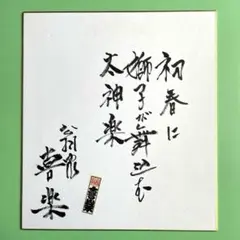 初春に
獅子が舞込む
太神楽
喜楽